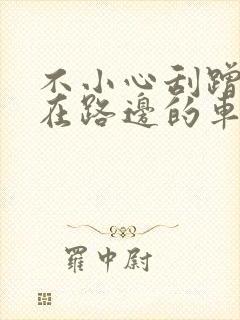 不小心刮蹭
在路邊的車
羅中尉